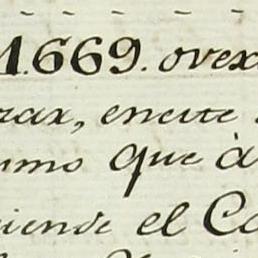 1.669. ovex
rax, encite
umo que à
iende el Co